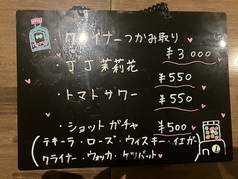 クライナーつかみ取り
¥3,000
・丁丁茉莉花
¥550
・トマトサワー
¥550
・ショットガチャ
¥500
(テキーラ・ローズ・ウィスキー・イエガー
クライナー・ウォッカ・ケツバット)